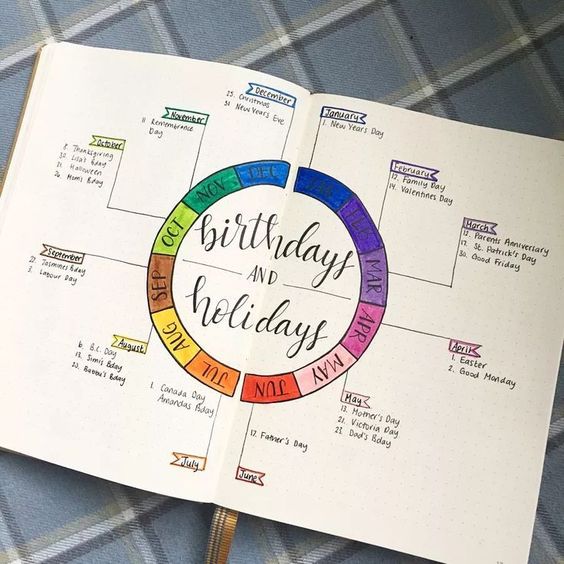 birthdays
AND
holidays
JAN
FEB
MAR
APR
MAY
JUN
JUL
AUG
SEP
OCT
NOV
DEC
January
1. New Years Day
February
12. Family Day
14. Valentines Day
March
12. Parents Anniversary
17. St. Patrick's Day
30. Good Friday
April
1. Easter
2. Good Monday
May
13. Mother's Day
21. Victoria Day
23. Dad's Bday
June
17. Father's Day
July
1. Canada Day
Amanda's Bday
August
6. B.C. Day
13. Simi's Bday
20. Babba's Bday
September
27. Jasmine's Bday
3. Labour Day
October
8. Thanksgiving
30. Lila's Bday
31. Halloween
26. Mom's Bday
November
11. Remembrance
Day
December
25. Christmas
31. New Year's Eve